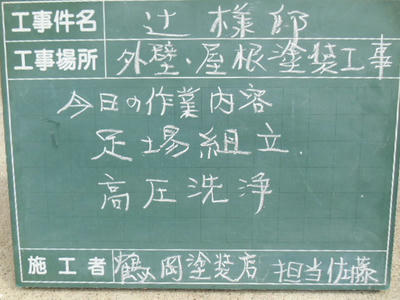 工事件名 辻様邸
工事場所 外壁・屋根塗装工事
今日の作業内容
足場組立
高圧洗浄
施工者 鶴岡塗装店 担当佐藤